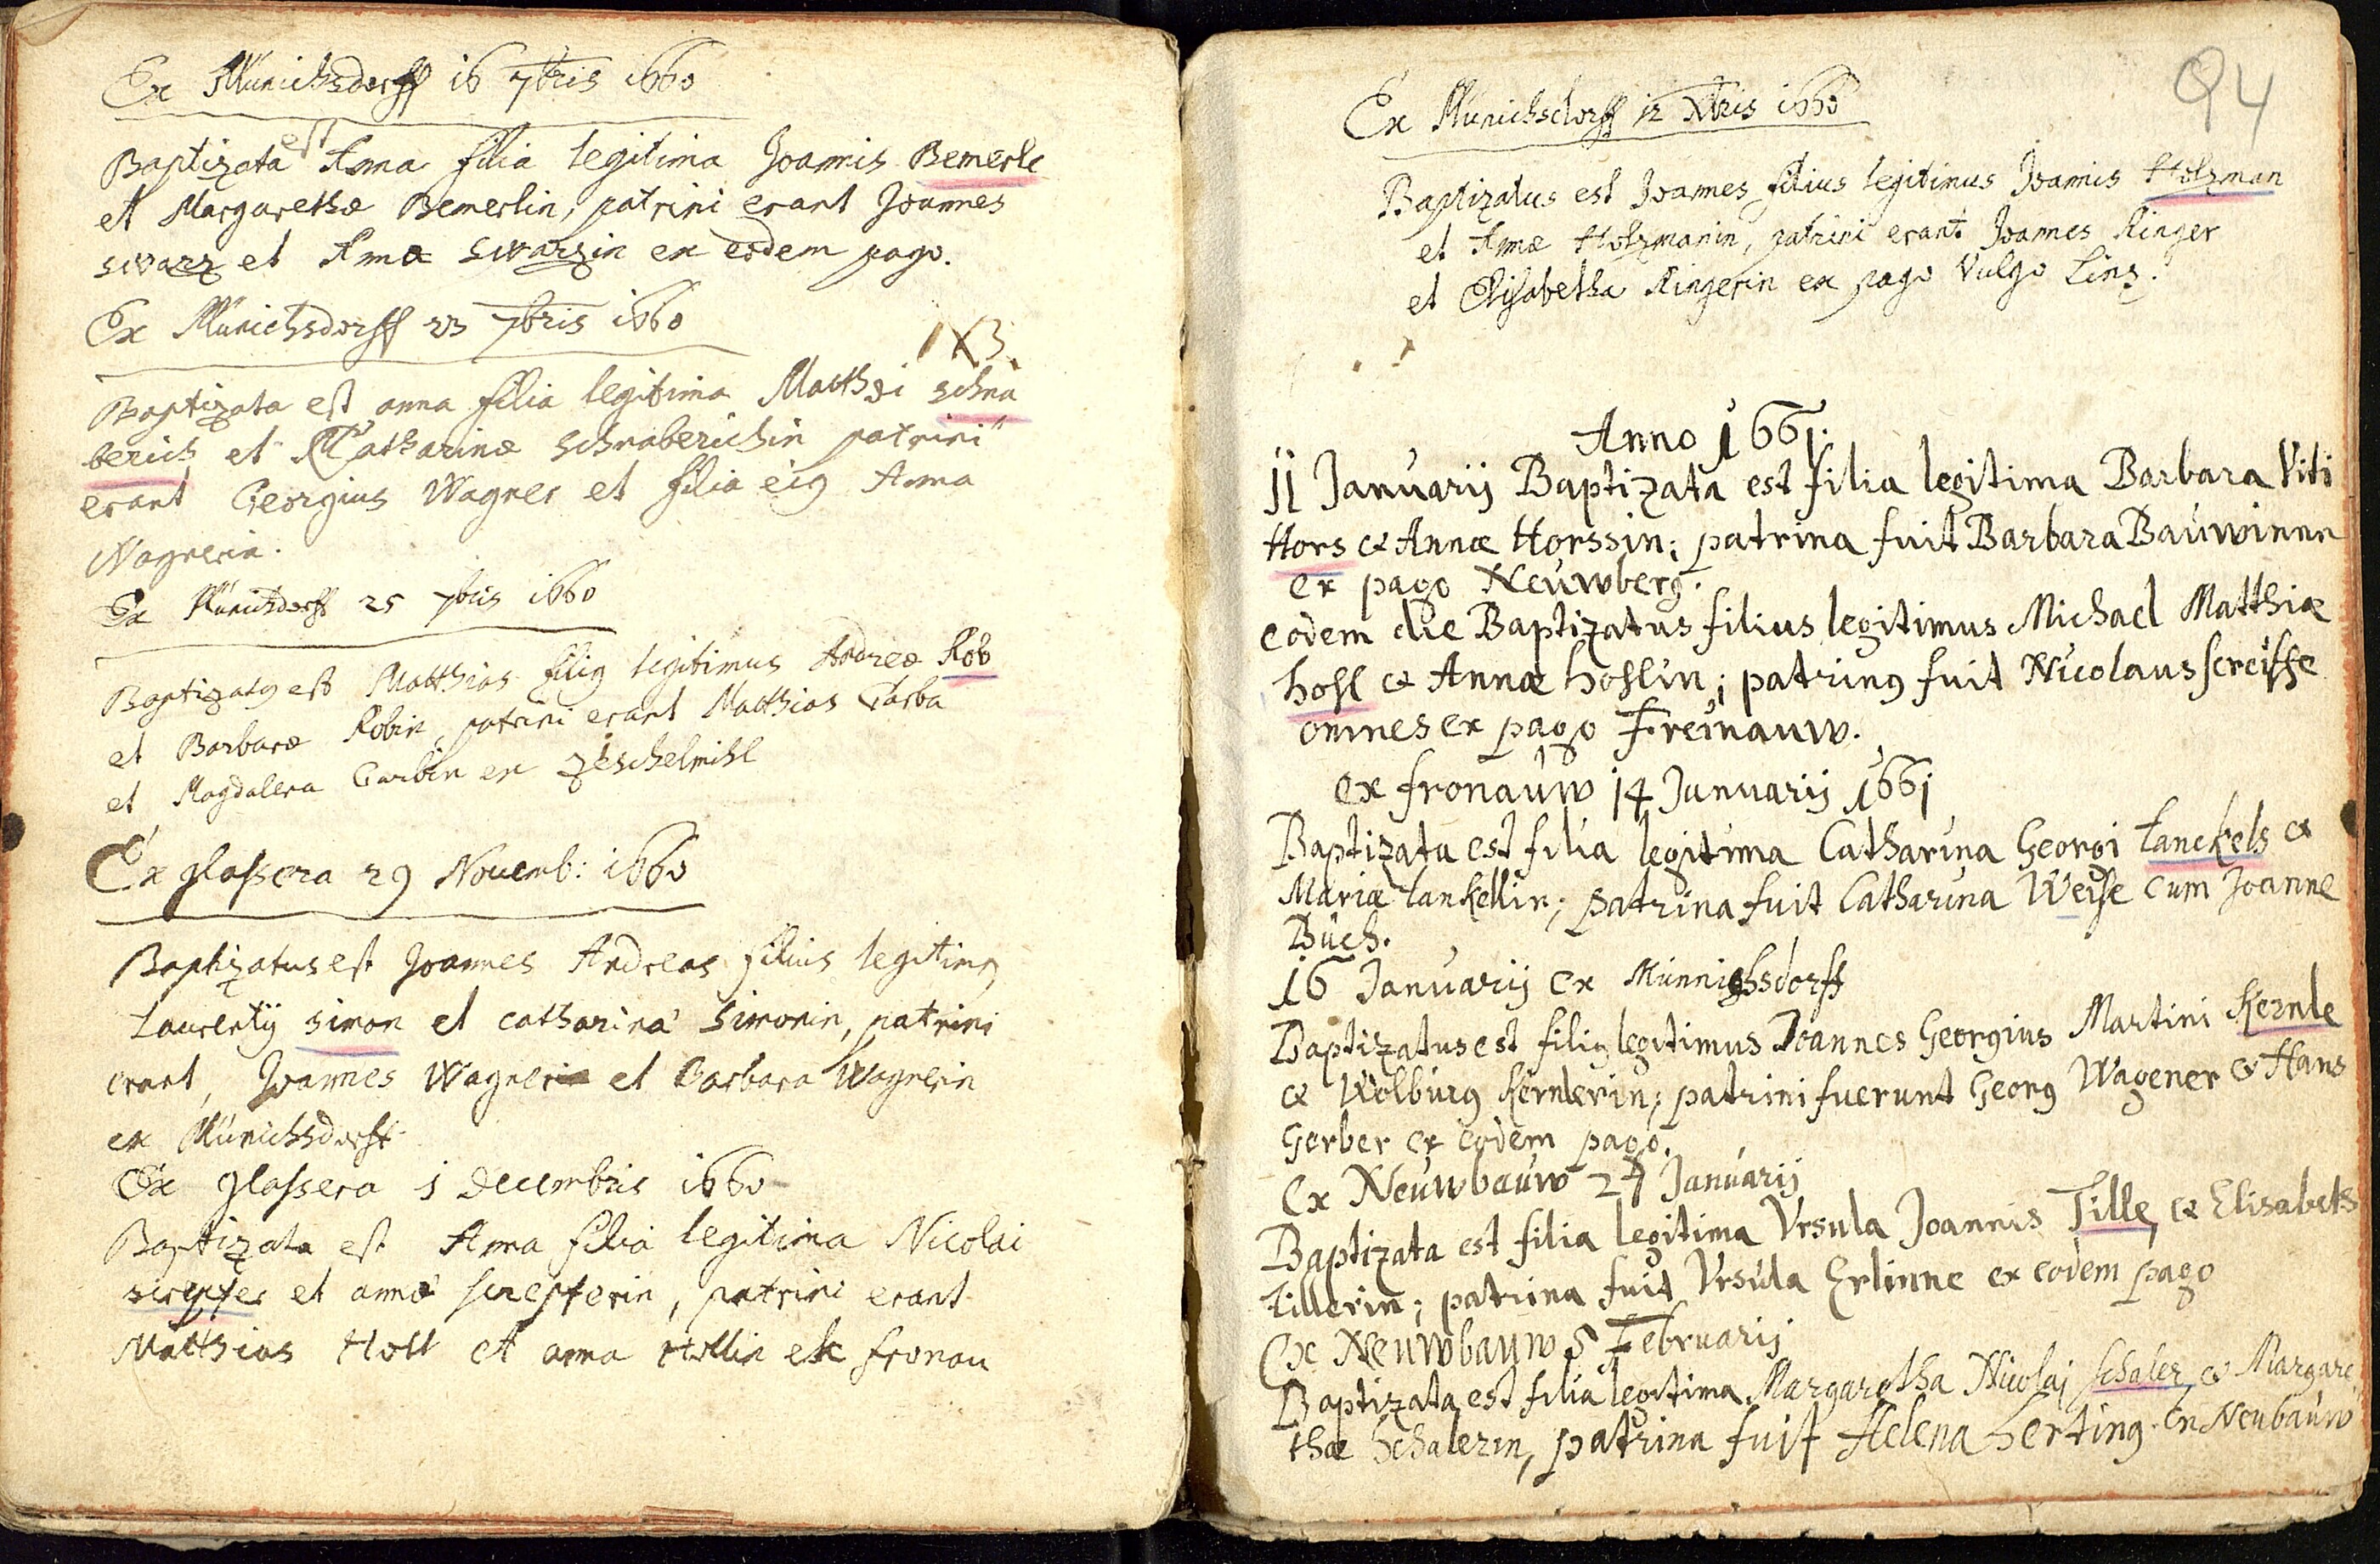 Ex Münichsdorff 16 7bris 1660
Baptizata est Anna filia legitima Joannis Bemerle
et Margarethæ Bemerlin, patrini erant Joannes
swarz et Anna swarzin ex eodem pago.
Ex Münichsdorff 23 7bris 1660
Baptizata est anna filia legitima Matthæi schna
berich et Catharinæ Schnaberichin patrini
erant Georgius Wagner et filia ei9 Anna
Wagnerin.
Ex Münichsdorff 25 7bris 1660
Baptizat9 est Matthias fili9 legitimus Andreæ Rob
et Barbaræ Robin, patrini erant Matthias Garba
et Magdalena Garbin ex zeschelmihl
Ex glassera 29 Novemb: 1660
Baptizatus est Joannes Andreas filius legitim9
Laurentij simon et catharina simonin, patrini
erant, Joannes Wagner et Barbara Wagnerin
ex Münichsdorff
Ex glassera 5 Decembris 1660
Baptizata est Anna filia legitima Nicolai
screpfer et annæ screpferin, patrini erant
Matthias Holl et anna Hollin ex fronau
94
Ex Münichsdorff 12 Xbris 1660
Baptizatus est Joannes filius legitimus Joannis Holzman
et Annæ Holzmanin, patrini erant Joannes Ringer
et Elisabetha Ringerin ex pago vulgo Linz.
Anno 1661.
11 Januarij Baptizata est filia legitima Barbara Viti
Hors et Annæ Horssin; patrina fuit Barbara Bauwinnn
ex pago Neuwberg.
eodem die Baptizatus filius legitimus Michael Matthiæ
hohl et Annæ hohlin; patrin9 fuit Nicolaus screiffe
omnes ex pago Freinauw.
ex fronauw 14 Januarij 1661
Baptizata est filia legitima Catharina Georgi Lanckels et
Mariæ Lankellin; patrina fuit Catharina Weise cum Joanne
Büch.
16 Januarij ex Münnighsdorff
Baptizatus est fili9 legitimus Joannes Georgius Martini Kernle
et Wolburg Kernlerin; patrini fuerunt Georg Wagener et Hans
Gerber ex eodem pago.
Ex Neuwbauw 27 Januarij
Baptizata est filia legitima Vrsula Joannis Tille, et Elisabeth
Tillerin; patrina fuit Vrsula Erlinne ex eodem pago
Ex Neuwbauw 5 Februarij
Baptizata est filia legitima Margaretha Nicolaj schaler, et Margare
thæ schalerin, patrina fuit Helena Herting. en Neubauw